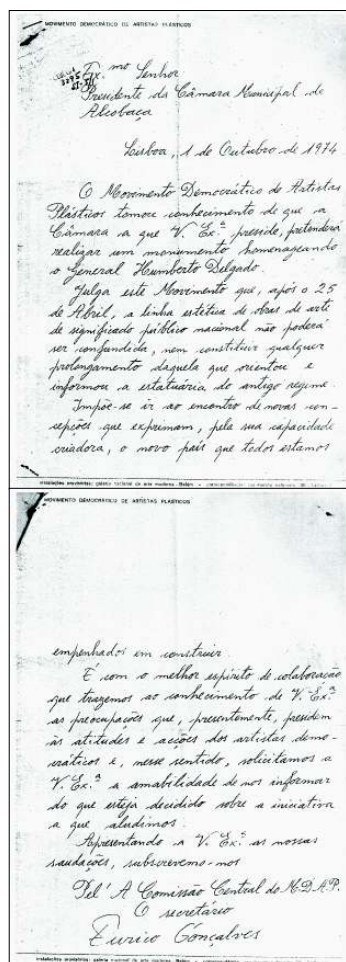 MOVIMENTO DEMOCRÁTICO DE ARTISTAS PLÁSTICOS
Ex.mo Senhor
Presidente da Câmara Municipal de
Alcobaça
Lisboa, 1 de Outubro de 1974
O Movimento Democrático de Artistas
Plásticos tomou conhecimento de que a
Câmara a que V. Ex.ª preside, pretenderá
realizar um monumento homenageando
o General Humberto Delgado.
Julga este Movimento que, após o 25
de Abril, a linha estética de obras de arte
de significado público nacional não poderá
ser confundida, nem constituir qualquer
prolongamento daquela que orientou e
informou a estatuária do antigo regime.
Impõe-se ir ao encontro de novas con-
sepções que exprimam, pela sua capacidade
criadora, o novo país que todos estamos
instalações provisórias: galeria nacional de arte moderna - Belém
MOVIMENTO DEMOCRÁTICO DE ARTISTAS PLÁSTICOS
empenhados em construir.
É com o melhor espírito de colaboração
que trazemos ao conhecimento de V. Ex.ª
as preocupações que, presentemente, presidem
às atitudes e acções dos artistas demo-
cráticos e, nesse sentido, solicitamos a
V. Ex.ª a amabilidade de nos informar
do que esteja decidido sobre a iniciativa
a que aludimos.
Apresentando a V. Ex.ª as nossas
saudações, subscrevemo-nos
Pel' A Comissão Central do M.D.A.P.
O secretário
Eurico Gonçalves
instalações provisórias: galeria nacional de arte moderna - Belém